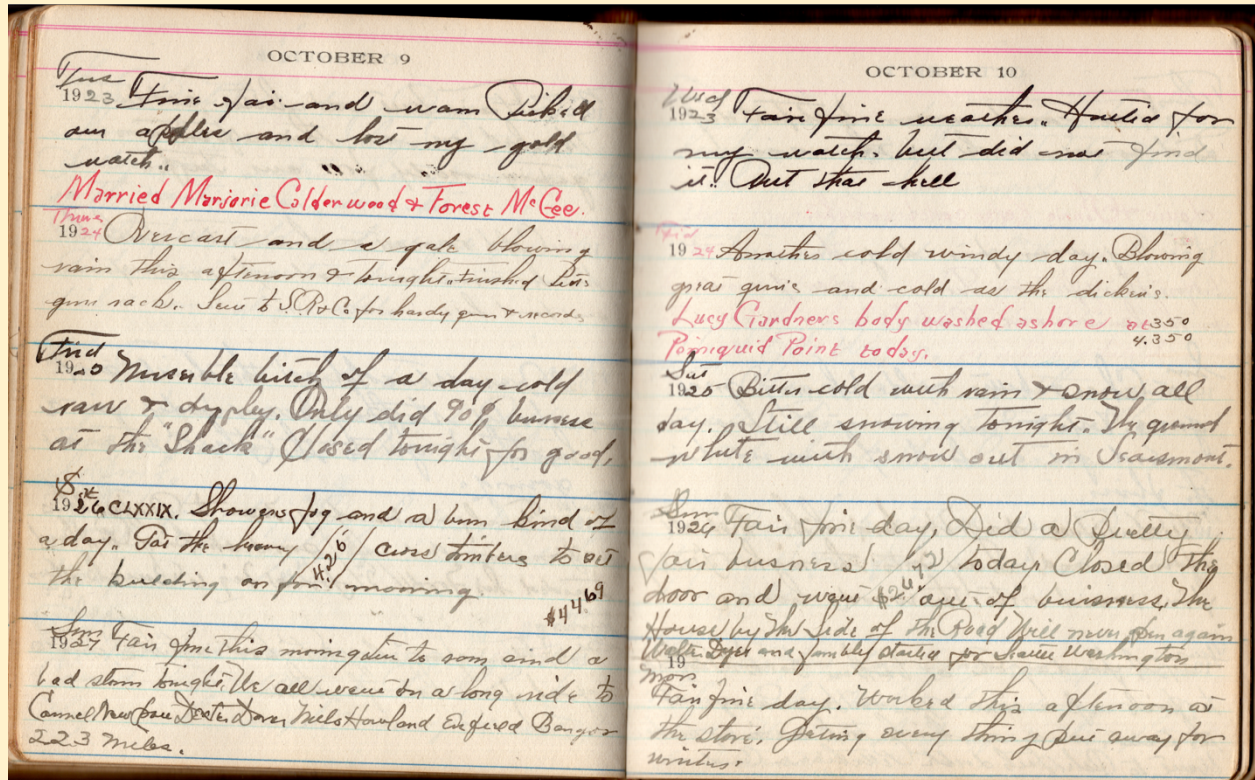 OCTOBER 9
Tues
1923 Fine fair and warm Picked
our apples and lost my gold
watch..
Married Marjorie Calderwood & Forest McGee.
Thurs
1924 Overcast and a gale blowing
rain this afternoon & tonight. Finished
gun rack. Sent to S.R.&Co for hardy gun & records
Frid
1925 Miserble bitch of a day cold
raw & . Only did 90¢ buness
at the "Shack" Closed tonight for good.
Sat
1926 CLXXIX. Showers fog and a bum kind of
a day. Got the heavy cross timbers to set
4.26
the building on for moving.
$44.69
Sun
1927 Fair fine this morning to and a
bad storm tonight. We all went on a long ride to
Carmel Newport Dexter Dover Milo Howland Enfield Bangor
223 Miles.
OCTOBER 10
Wed
1923 Fair fine weather. Hunted for
my watch. but did not find
it. Out that hell
Frid
1924 Another cold windy day. Blowing
great guns and cold as the dickens.
Lucy Gardners body washed ashore at 350
Pemiquid Point today. 4.350
Sat
1925 Bitter cold with rain & snow all
day. Still snowing tonight. The ground
white with snow out in Searsmont.
Sun
1926 Fair fine day. Did a Pretty
fair busness today Closed the
door and went out of buisness. The
House by the side of the Road Will never open again
Walter Dyer and fambly started for Seattle Washington
19
Mon
Fair fine day. Worked this afternoon at
the store. Getting every thing put away for
winter.